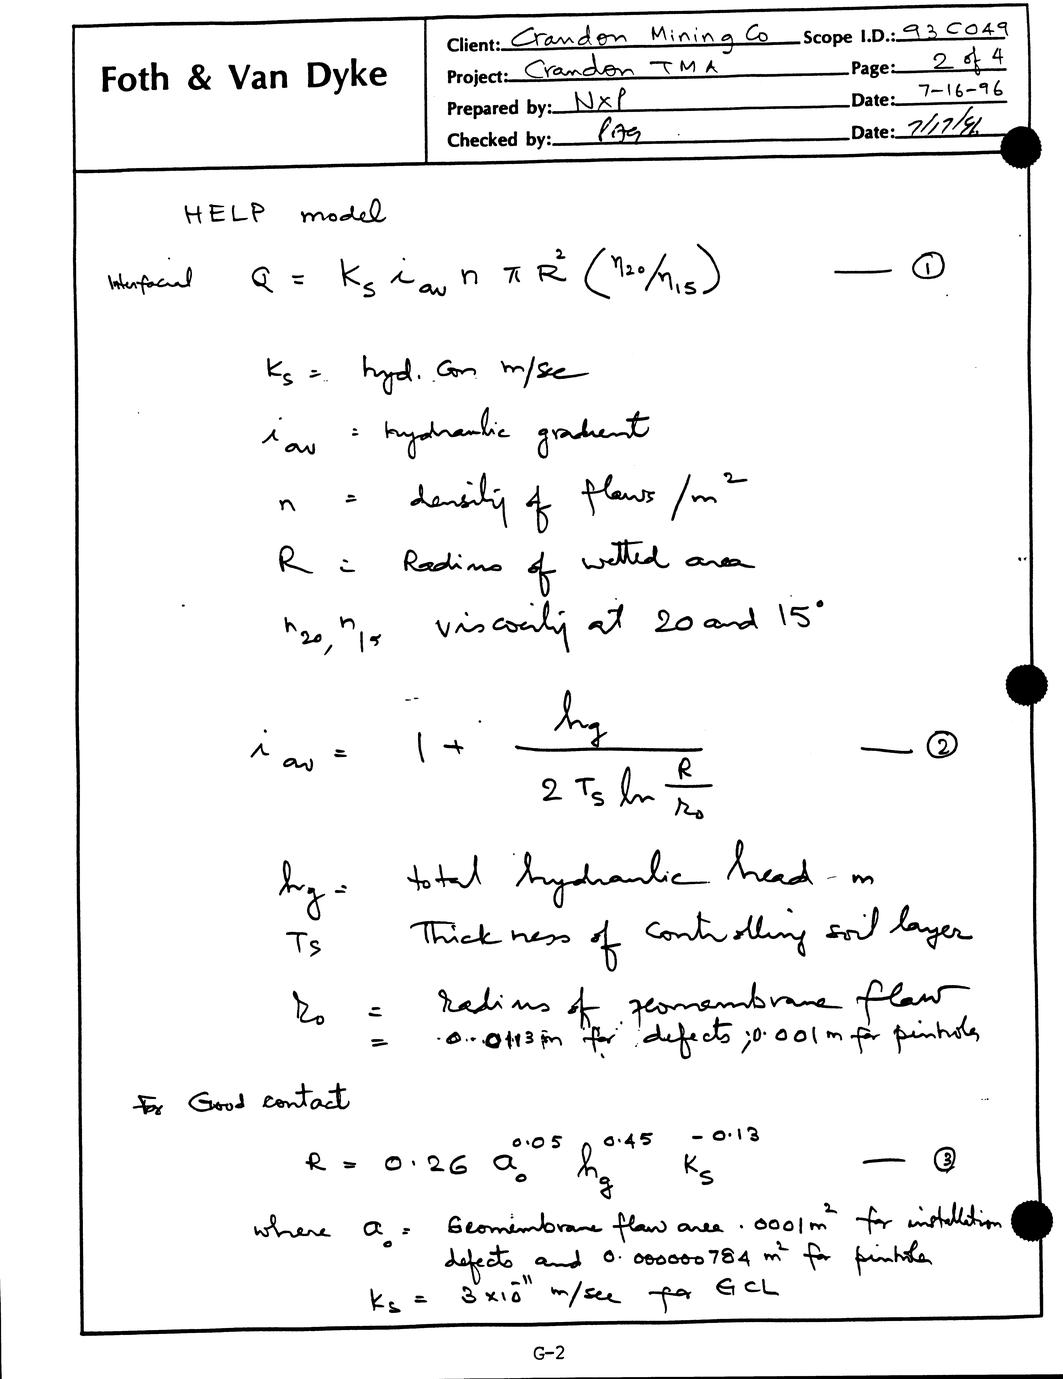 Foth & Van Dyke
Client: Crandon Mining Co Scope I.D.: 93C049
Project: Crandon TMA Page: 2 of 4
Prepared by: NXP Date: 7-16-96
Checked by: Date: 7/17/96
HELP model
Interfacial Q = Ks iav n π R² (η20/η15) — ①
Ks = hyd. Con m/sec
iav = hydraulic gradient
n = density of flaws /m²
R = Radius of wetted area
η20, η15 viscosity at 20 and 15°
iav = 1 + hg / (2 Ts ln R/r0) — ②
hg = total hydraulic head - m
Ts Thickness of controlling soil layer
r0 = radius of geomembrane flaw
= 0.0113 m for defects ; 0.001 m for pinholes
For Good contact
R = 0.26 a0^0.05 hg^0.45 Ks^-0.13 — ③
where a0 = Geomembrane flaw area .0001 m² for installation
defects and 0.000000784 m² for pinholes
Ks = 3 x 10^-11 m/sec for GCL
G-2